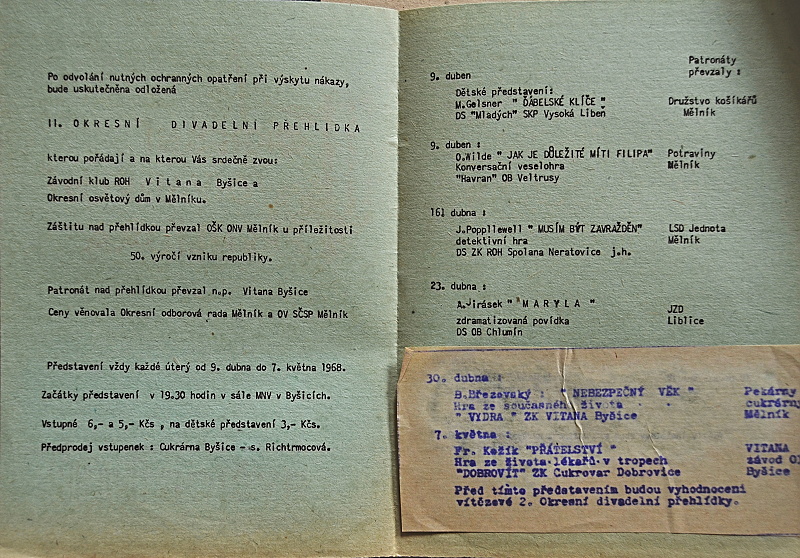 Po odvolání nutných ochranných opatření při výskytu nákazy,
bude uskutečněna odložená
II. OKRESNÍ DIVADELNÍ PŘEHLÍDKA
kterou pořádají a na kterou Vás srdečně zvou:
Závodní klub ROH Vitana Byšice a
Okresní osvětový dům v Mělníku.
Záštitu nad přehlídkou převzal OŠK ONV Mělník u příležitosti
50. výročí vzniku republiky.
Patronát nad přehlídkou převzal n.p. Vitana Byšice
Ceny věnovala Okresní odborová rada Mělník a OV SČSP Mělník
Představení vždy každé úterý od 9. dubna do 7. května 1968.
Začátky představení v 19.30 hodin v sále MNV v Byšicích.
Vstupné 6,- a 5,- Kčs , na dětské představení 3,- Kčs.
Předprodej vstupenek : Cukrárna Byšice - s. Richtrmocová.
Patronáty
převzaly :
9. duben
Dětské představení:
M.Gelsner " ĎÁBELSKÉ KLÍČE "
DS "Mladých" SKP Vysoká Libeň
Družstvo košíkářů
Mělník
9. duben :
O.Wilde " JAK JE DŮLEŽITÉ MÍTI FILIPA"
Konversační veselohra
"Havran" OB Veltrusy
Potraviny
Mělník
16. dubna :
J.Poppllewell " MUSÍM BÝT ZAVRAŽDĚN"
detektivní hra
DS ZK ROH Spolana Neratovice j.h.
LSD Jednota
Mělník
23. dubna :
A.Jirásek " MARYLA "
zdramatizovaná povídka
DS OB Chlumín
JZD
Liblice
30. dubna :
B.Březovský : " NEBEZPEČNÝ VĚK "
Hra ze současného života
" VYDRA " ZK VITANA Byšice
Pekárny
cukrárny
Mělník
7. května :
Fr. Kožík "PŘÁTELSTVÍ "
Hra ze života lékařů v tropech
"DOBROVÍT" ZK Cukrovar Dobrovice
VITANA
závod
Byšice
Před tímto představením budou vyhodnoceni
vítězové 2. Okresní divadelní přehlídky.